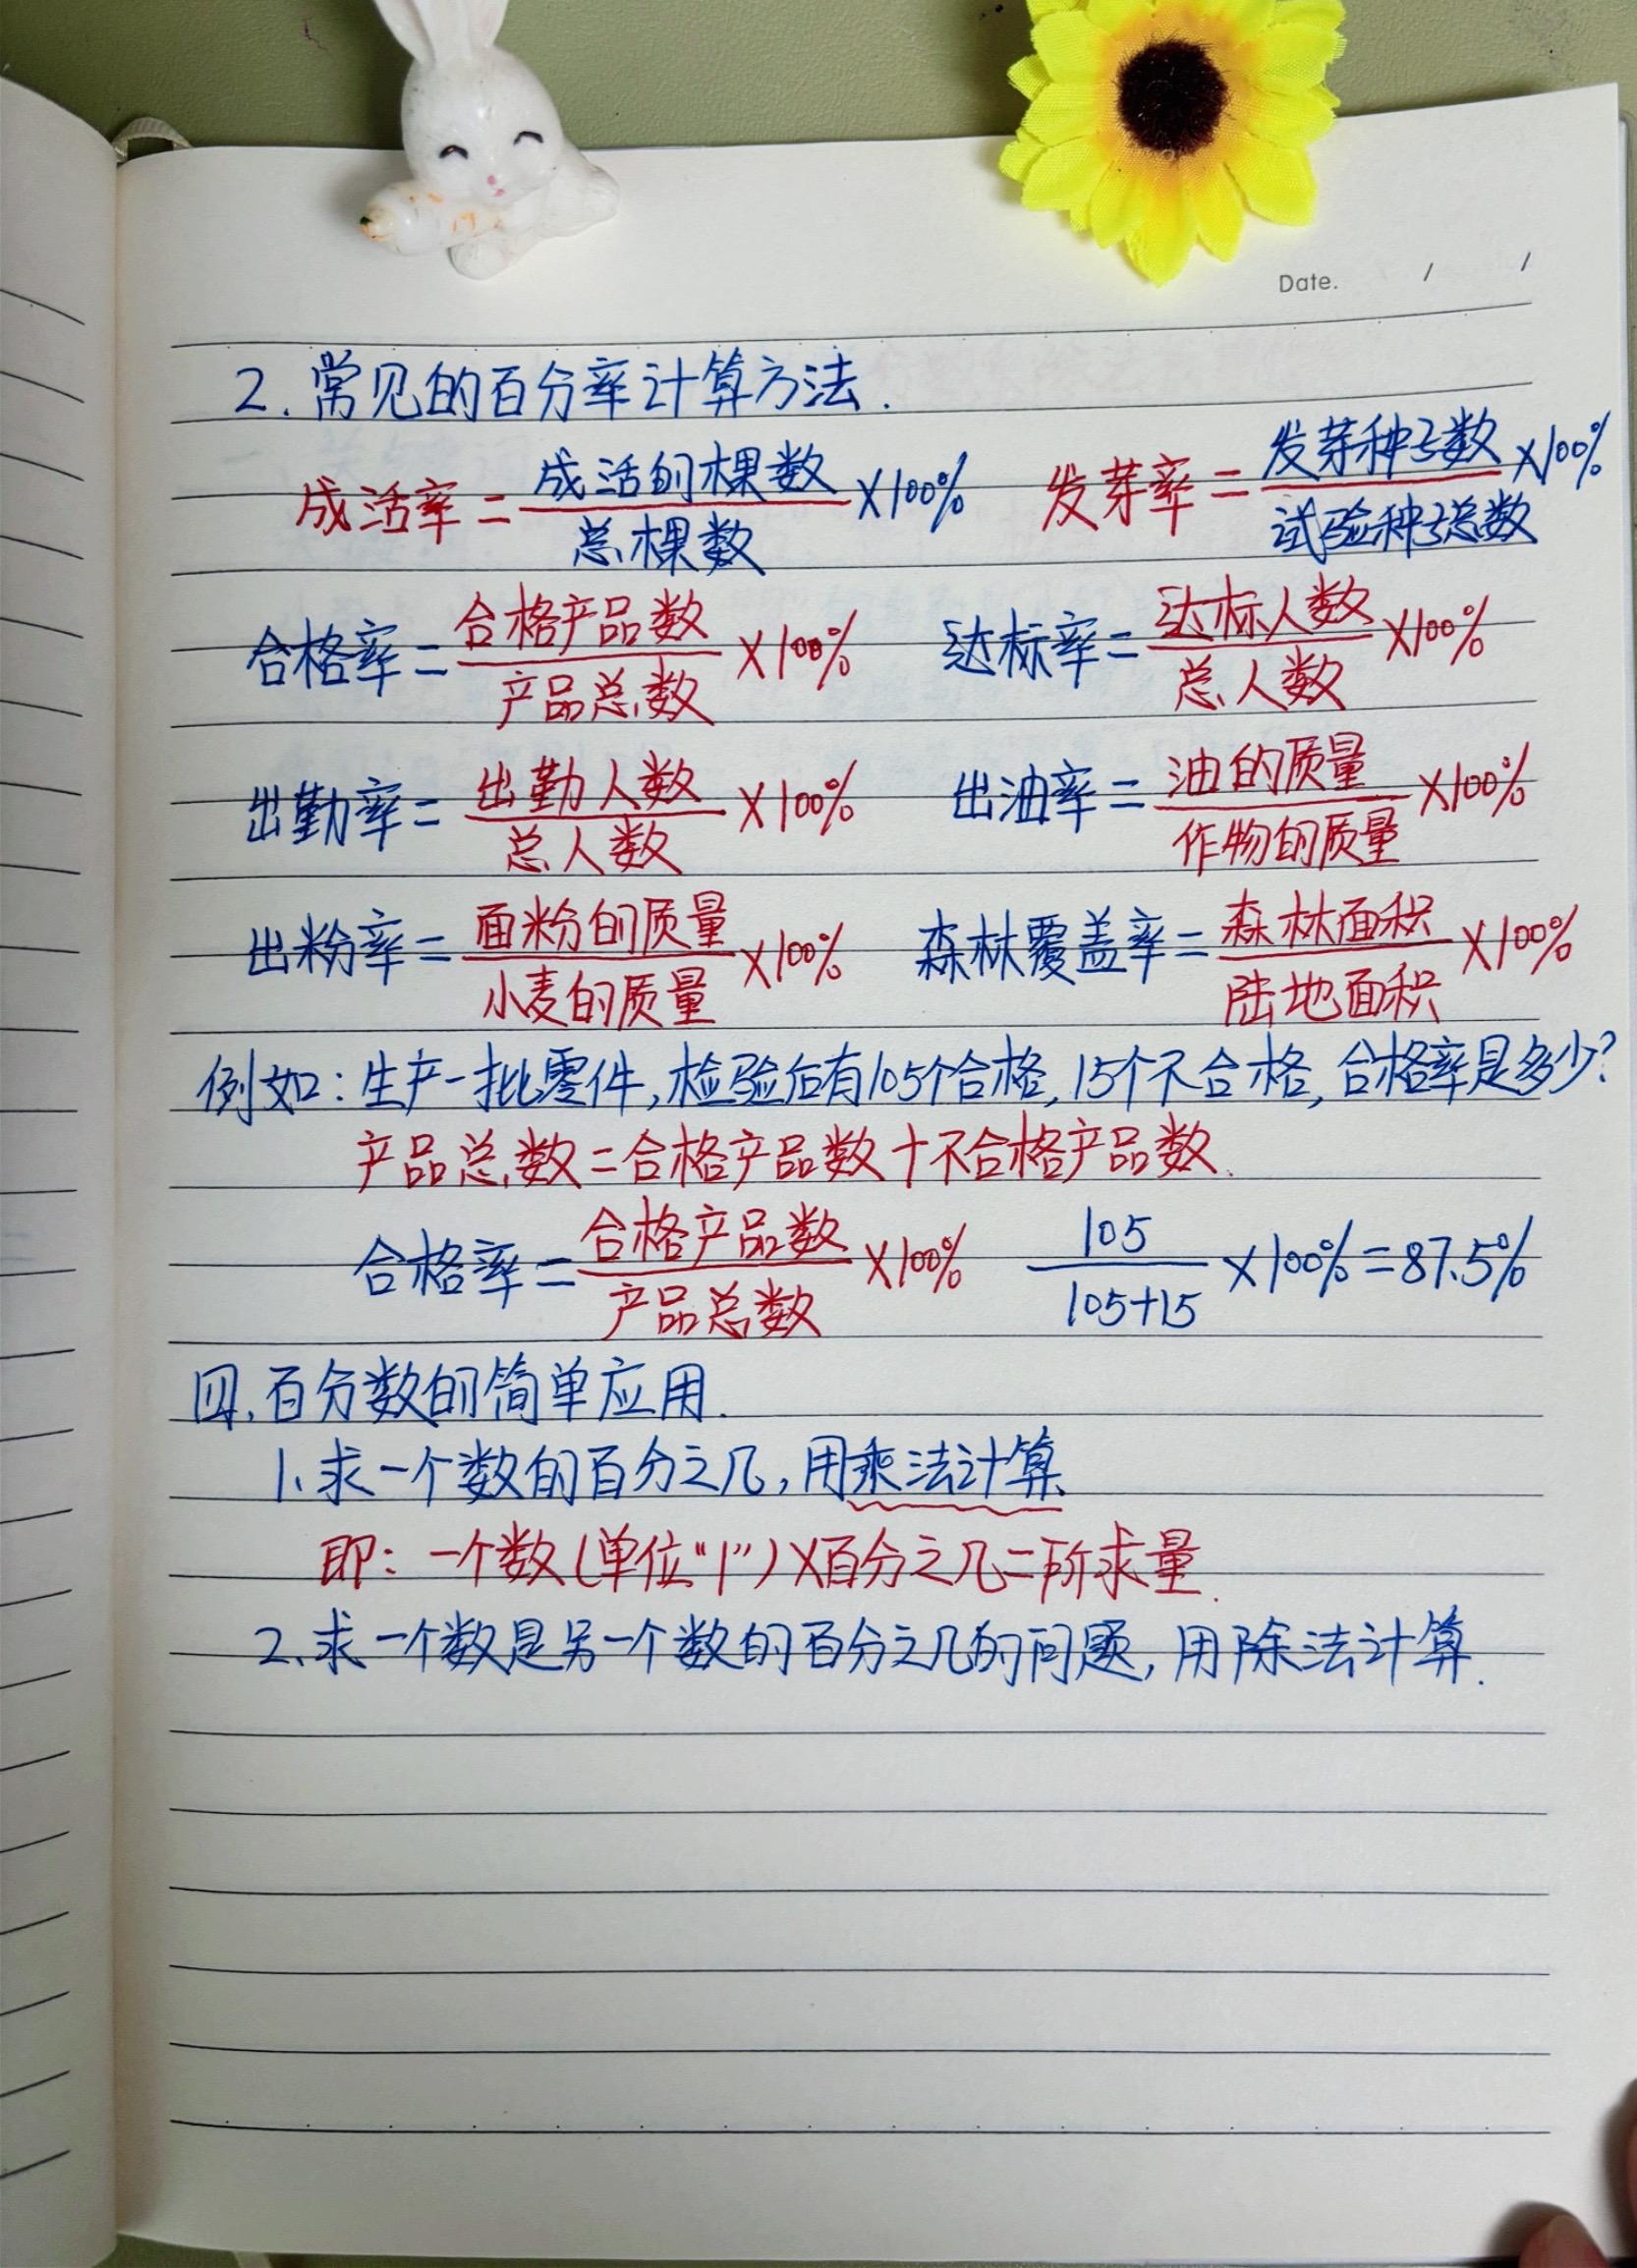 Date. / /
2.常见的百分率计算方法.
成活率=成活的棵数/总棵数×100% 发芽率=发芽种子数/试验种子总数×100%
合格率=合格产品数/产品总数×100% 达标率=达标人数/总人数×100%
出勤率=出勤人数/总人数×100% 出油率=油的质量/作物的质量×100%
出粉率=面粉的质量/小麦的质量×100% 森林覆盖率=森林面积/陆地面积×100%
例如:生产一批零件,检验后有105个合格,15个不合格,合格率是多少?
产品总数=合格产品数+不合格产品数.
合格率=合格产品数/产品总数×100% 105/105+15×100%=87.5%
四.百分数的简单应用.
1.求一个数的百分之几,用乘法计算.
即:一个数(单位"1")×百分之几=所求量.
2.求一个数是另一个数的百分之几的问题,用除法计算.